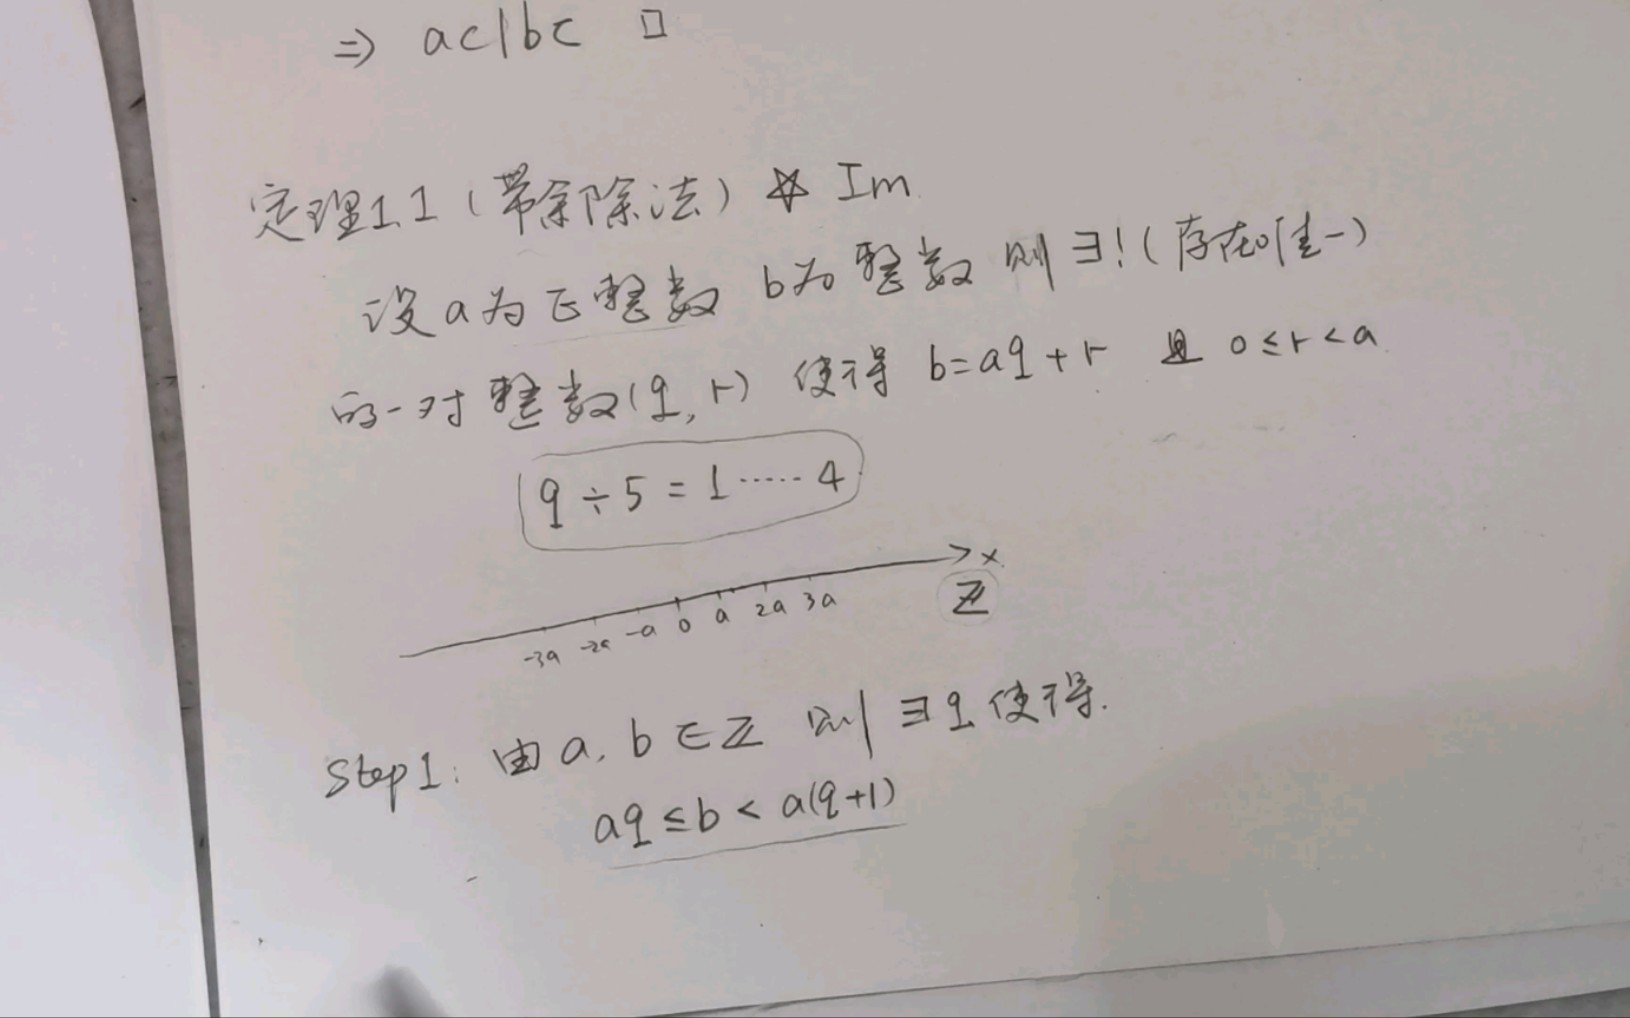 ⇒ ac|bc □
定理1.1 (带余除法) ☆ Im.
设a为正整数 b为整数 则∃!(存在唯一)
的一对整数(q, r) 使得 b=aq+r 且 0≤r<a.
9÷5=1·····4
x
-3a -2a -a 0 a 2a 3a
ℤ
Step1: 由a, b∈ℤ 则∃q使得.
aq≤b<a(q+1)